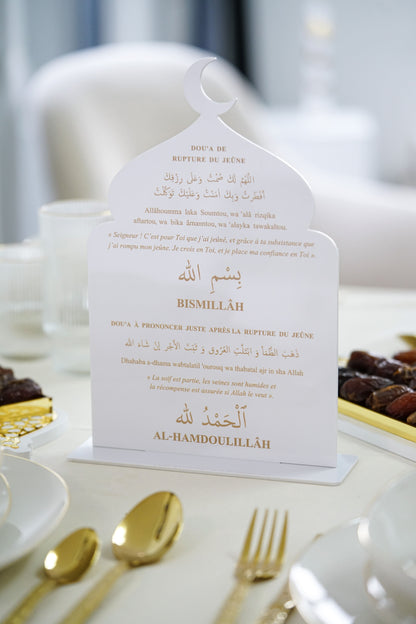 DOU'A DE
RUPTURE DU JEÛNE
اللَّهُمَّ لَكَ صُمْتُ وَعَلَى رِزْقِكَ
أَفْطَرْتُ وَبِكَ آمَنْتُ وَعَلَيْكَ تَوَكَّلْتُ
Allâhoumma laka Soumtou, wa 'alâ rizqika
aftartou, wa bika âmanntou, wa 'alayka tawakaltou.
« Seigneur ! C'est pour Toi que j'ai jeûné, et grâce à ta subsistance que
j'ai rompu mon jeûne. Je crois en Toi, et je place ma confiance en Toi ».
بِسْمِ اللّٰه
BISMILLÂH
DOU'A À PRONONCER JUSTE APRÈS LA RUPTURE DU JEÛNE
ذَهَبَ الظَّمَأُ وَ ابْتَلَّتِ العُرُوقُ وَ ثَبَتَ الأَجْرُ إِنْ شَاءَ الله
Dhahaba a-dhama wabtalatil 'ourouq wa thabatal ajr in sha Allah
« La soif est partie, les veines sont humides et
la récompense est assurée si Allah le veut ».
اَلْحَمْدُ لِله
AL-HAMDOULILLÂH